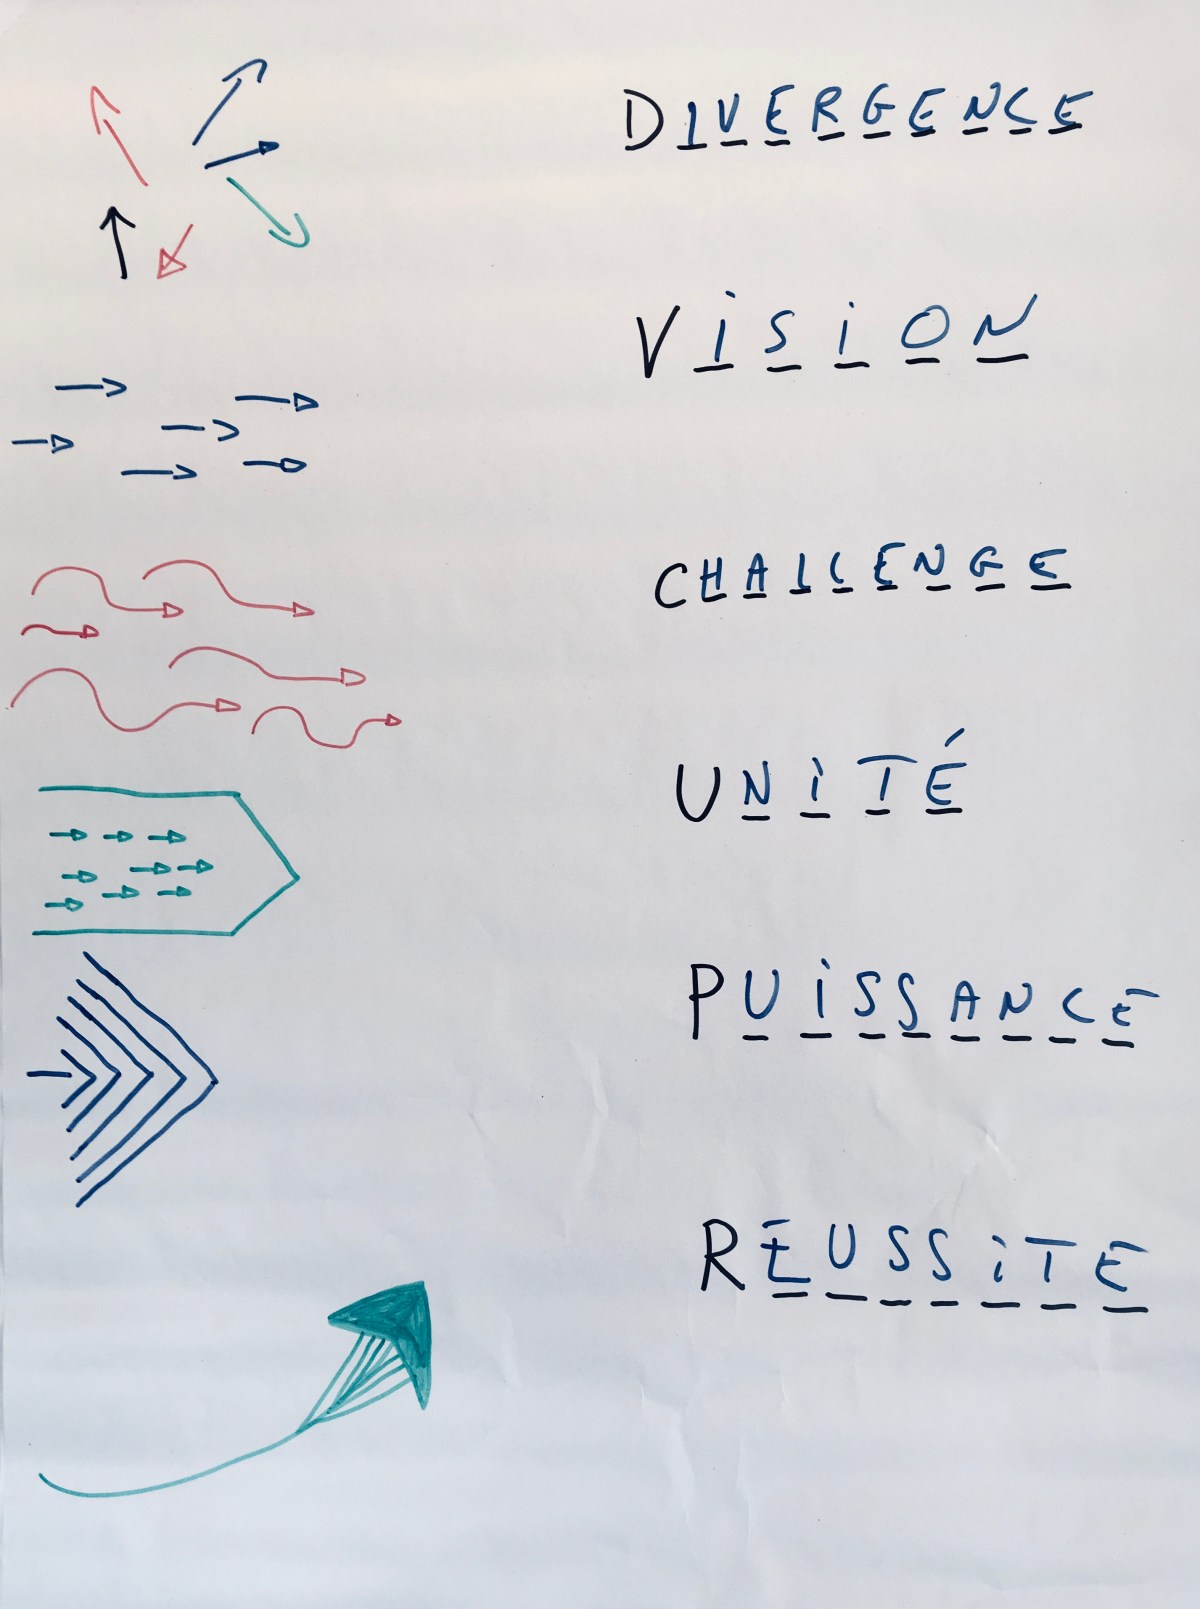 DIVERGENCE
VISION
CHALLENGE
UNITÉ
PUISSANCE
REUSSITE